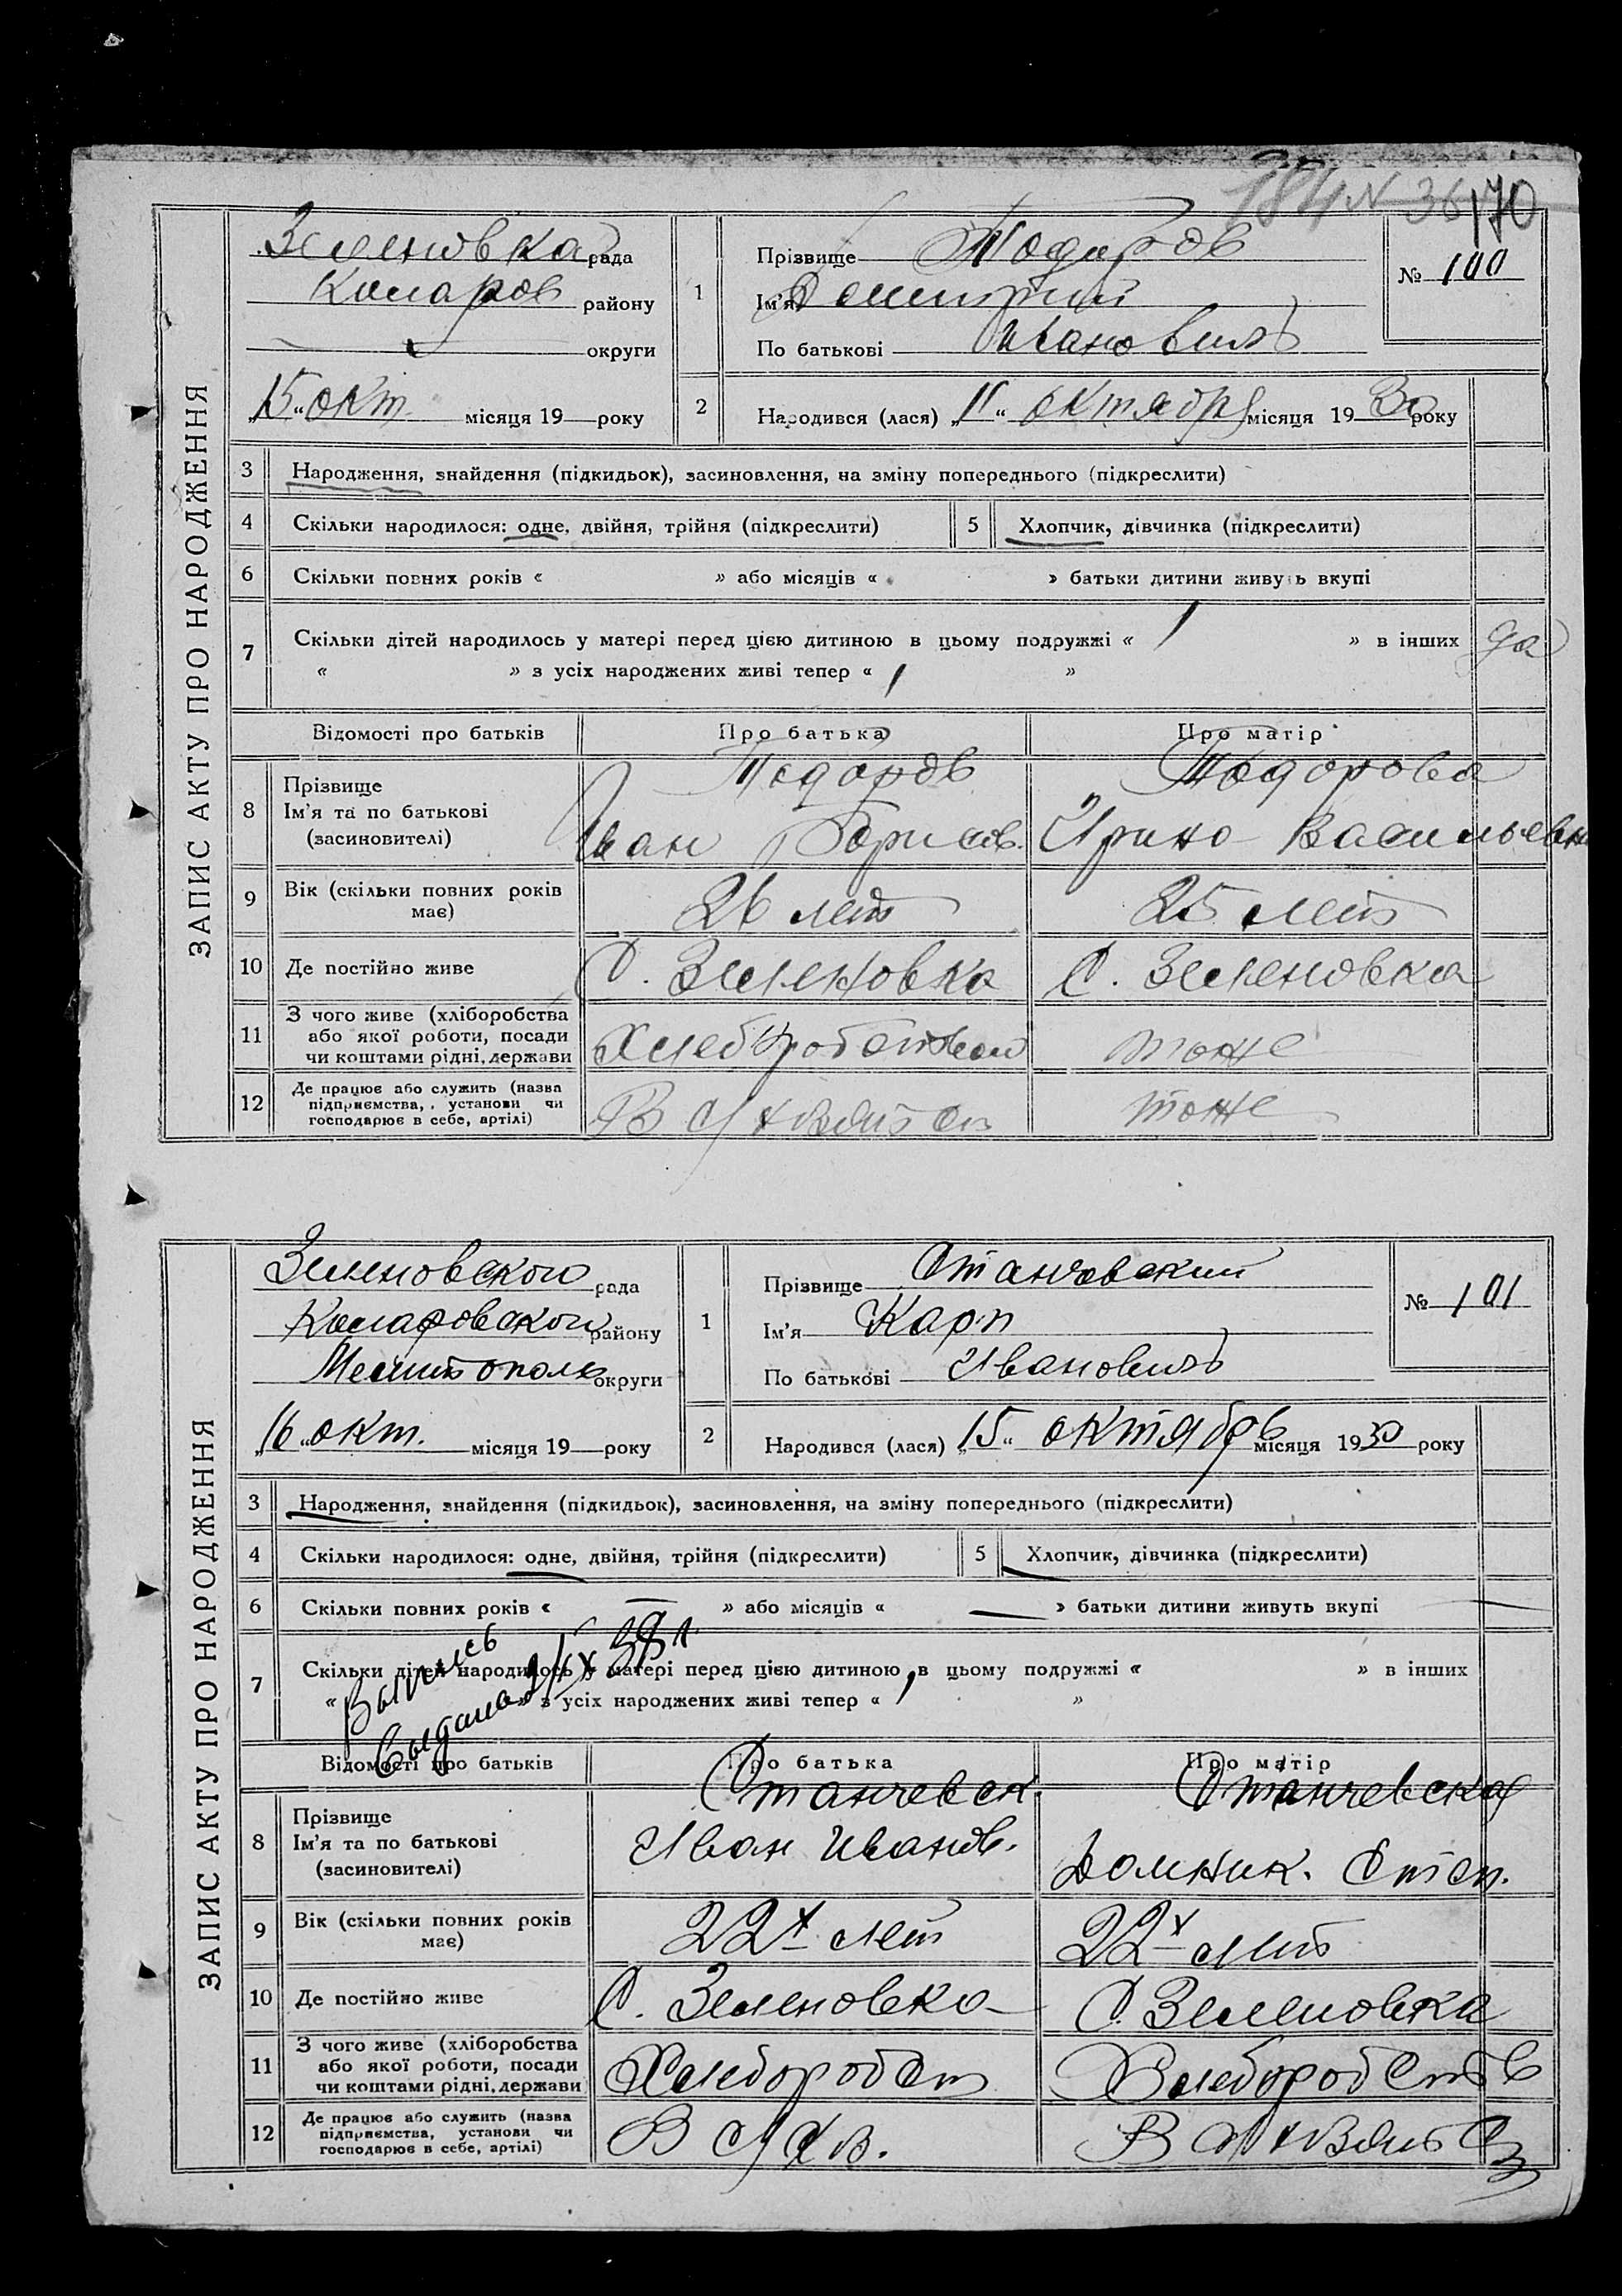 184 N 36 170
ЗАПИС АКТУ ПРО НАРОДЖЕННЯ
Зеленовка рада
Комаров району
округи
„15“ окт. місяця 19 року
1
Прізвище Тодоров
Ім'я Дмитрий
По батькові Ивановичъ
№ 100
2
Народився (лася) „11“ октября місяця 1930 року
3 Народження, знайдення (підкидьок), засиновлення, на зміну попереднього (підкреслити)
4 Скільки народилося: одне, двійня, трійня (підкреслити) 5 Хлопчик, дівчинка (підкреслити)
6 Скільки повних років « » або місяців « » батьки дитини живуть вкупі
7 Скільки дітей народилось у матері перед цією дитиною в цьому подружжі « 1 » в інших да
« » з усіх народжених живі тепер « 1 »
Відомості про батьків Про батька Про матір
8 Прізвище Тодоров Тодорова
Ім'я та по батькові
(засиновителі) Иван Борисов. Ирина Васильевн
9 Вік (скільки повних років має) 26 лет 25 лет
10 Де постійно живе С. Зеленовка С. Зеленовка
11 З чого живе (хліборобства
або якої роботи, посади
чи коштами рідні, держави тоже
12 Де працює або служить (назва
підприємства, установи чи
господарює в себе, артілі) тоже
ЗАПИС АКТУ ПРО НАРОДЖЕННЯ
Зеленовского рада
Комаровского району
Мелитополь округи
„16“ окт. місяця 19 року
1
Прізвище Станчевский
Ім'я Карп
По батькові Ивановичъ
№ 101
2
Народився (лася) „15“ октября місяця 1930 року
3 Народження, знайдення (підкидьок), засиновлення, на зміну попереднього (підкреслити)
4 Скільки народилося: одне, двійня, трійня (підкреслити) 5 Хлопчик, дівчинка (підкреслити)
6 Скільки повних років « — » або місяців « — » батьки дитини живуть вкупі —
7 Скільки дітей народилось у матері перед цією дитиною в цьому подружжі « » в інших
« » з усіх народжених живі тепер « »
Выпись
выдана
Відомості про батьків Про батька Про матір
8 Прізвище Станчевск. Станчевская
Ім'я та по батькові Иван Иванов.
(засиновителі) Домник. Степ.
9 Вік (скільки повних років має) 22х лет 22х лет
10 Де постійно живе С. Зеленовка С. Зеленовка
11 З чого живе (хліборобства
або якої роботи, посади
чи коштами рідні, держави Хлеборобст Хлеборобств
12 Де працює або служить (назва
підприємства, установи чи
господарює в себе, артілі)